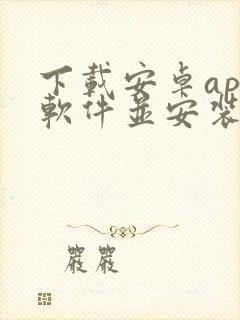 下載安卓ap
軟件並安裝
嚴嚴